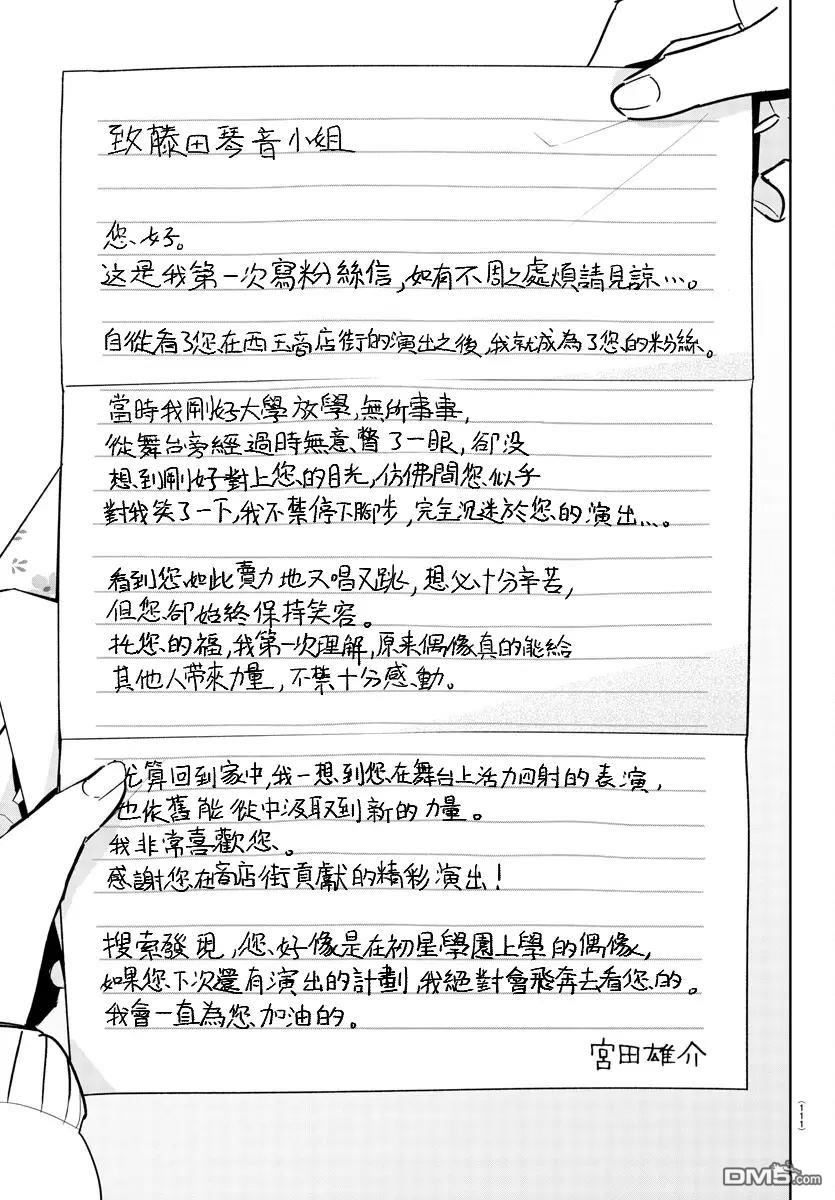 致藤田琴音小姐
您好。
这是我第一次寫粉絲信，如有不周之處煩請見諒…。
自從看了您在西玉商店街的演出之後，我就成為了您的粉絲。
當時我剛好大學放學，無所事事，
從舞台旁經過時無意瞥了一眼，卻没
想到剛好對上您的目光，仿佛間您似乎
對我笑了一下，我不禁停下腳步，完全沉迷於您的演出…。
看到您如此賣力地又唱又跳，想必十分辛苦，
但您卻始終保持笑容。
托您的福，我第一次理解，原来偶像真的能給
其他人帶來力量，不禁十分感動。
光算回到家中，我一想到您在舞台上活力四射的表演，
也依舊能從中汲取到新的力量。
我非常喜歡您。
感謝您在商店街貢獻的精彩演出！
搜索發現，您好像是在初星學園上學的偶像，
如果您下次還有演出的計劃，我絕對會飛奔去看您的。
我會一直為您加油的。
宮田雄介
(111)
DM5.com